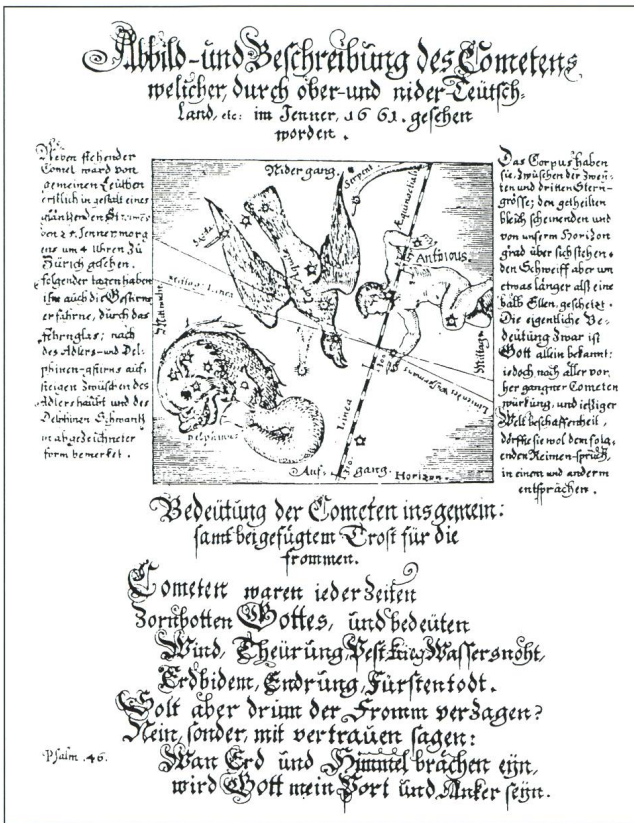 Abbild-und Beschreibung des Cometens
welicher, durch ober-und nider-Teütsch-
Land, etc: im Jenner, 1661. gesehen
worden.
Neben stehender
Comet ward von
gemeinen Leüthen
erstlich in gestalt eines
gläntzenden Sternes
den 24 Jenner morg
ens um 4 Uhren zu
Zürich gesehen.
folgender tagen haben
ihne auch die Gestirns
erfahrne, durch das
fehrnglas; nach
des Adlers-und Del-
phinen-gstirns auf,
steigen zwüschen des
Adlers haübt und des
Delphinen Schwantz
in abgezeichneter
form bemerket.
Nider gang.
Serpent.
Æquinoctialis
Antinous.
Mittnacht
Mittag.
Linea
Delphinus
Auf-gang.
Horizon.
Das Corpus haben
sie, zwüschen der zwey-
ten und dritten Stern-
grösse; den getheilten
bleich scheinenden und
von unserm Horizon
grad über sich stehen-
den Schweiff aber um
etwas länger alß eine
halb Ellen, geschetzt.
Die eigentliche Be-
deütung zwar ist
Gott allein bekannt;
iedoch nach aller vor,
her gangner Cometen
würkung, und ietziger
Welt beschaffenheit,
dörffte sie wol dem folg,
enden Reimen-spruch,
in einem und anderm
entsprächen.
Bedeütung der Cometen insgemein:
samt beigefügtem Trost für die
frommen.
Cometen waren ieder Zeiten
Zornbotten Gottes, und bedeüten
Wind, Theürung, Pest, krieg, Wassersnöht,
Erdbidem, Endrung, Fürstentodt.
Solt aber drum der Fromm verzagen?
Nein, sonder, mit vertrauen sagen:
Psalm .46.
Wan Erd und Himmel brächen eyn,
wird Gott mein Port und Anker seyn.